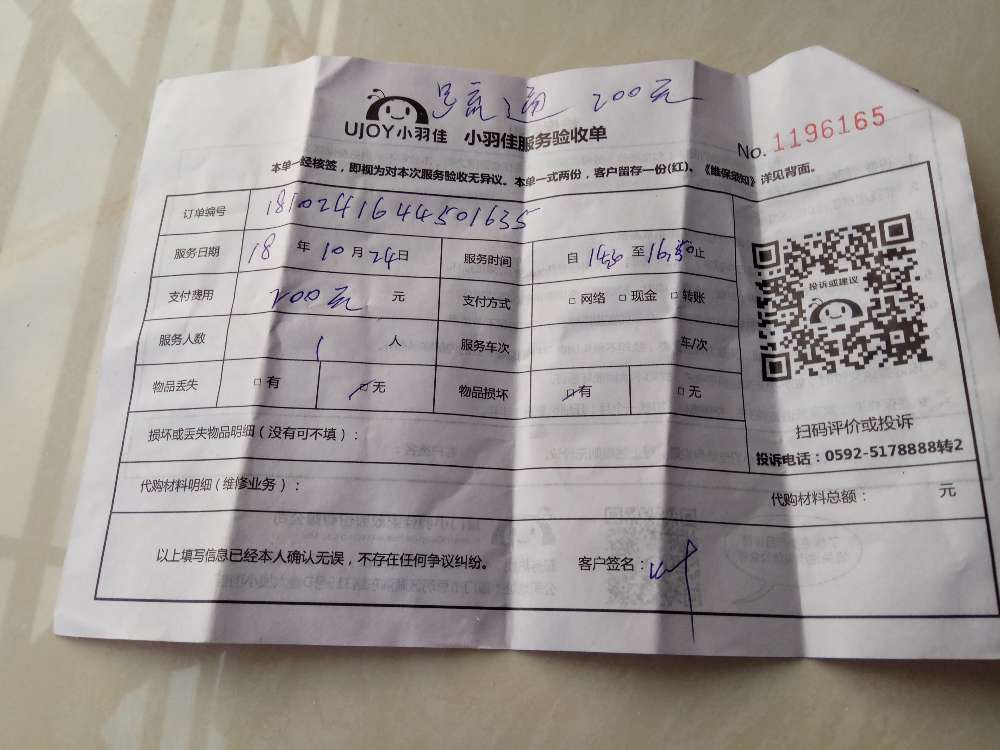 通 200元
UJOY小羽佳 小羽佳服务验收单
No. 1196165
本单一经核签，即视为对本次服务验收无异议。本单一式两份，客户留存一份(红)。《维保须知》详见背面。
订单编号 1810241644501635
服务日期 18 年 10 月 24 日 服务时间 自 至 止
支付费用 200元 元 支付方式 □ 网络 □ 现金 □ 转账
服务人数 1 人 服务车次 车/次
物品丢失 □ 有 □ 无 物品损坏 □ 有 □ 无
投诉或建议
损坏或丢失物品明细（没有可不填）：
扫码评价或投诉
投诉电话：0592-5178888转2
代购材料明细（维修业务）： 代购材料总额： 元
以上填写信息已经本人确认无误，不存在任何争议纠纷。 客户签名：